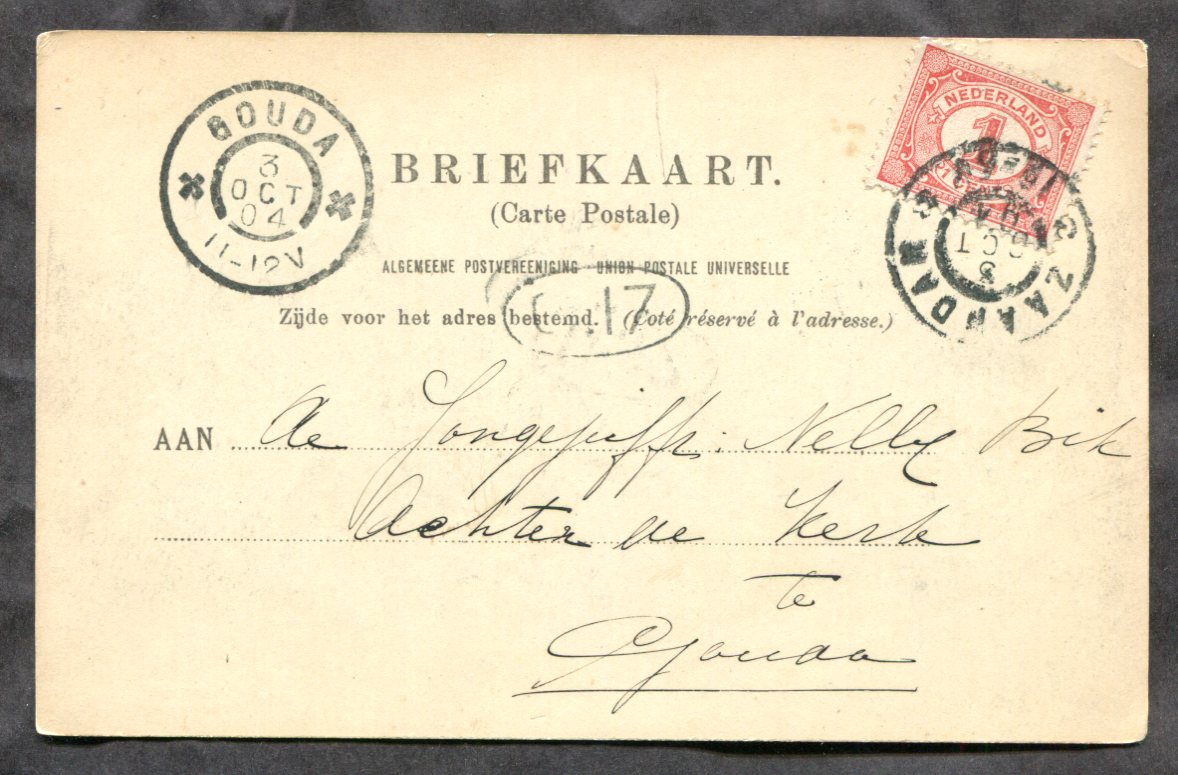 GOUDA
3
OCT
04
11-12V
NEDERLAND
1
CENT
ZAANDAM
3
OCT
BRIEFKAART.
(Carte Postale)
ALGEMEENE POSTVEREENIGING - UNION POSTALE UNIVERSELLE
17
Zijde voor het adres bestemd. (Coté réservé à l'adresse.)
AAN de Jongejuffr: Nelly Bik
Achter de Kerk
te
Gouda